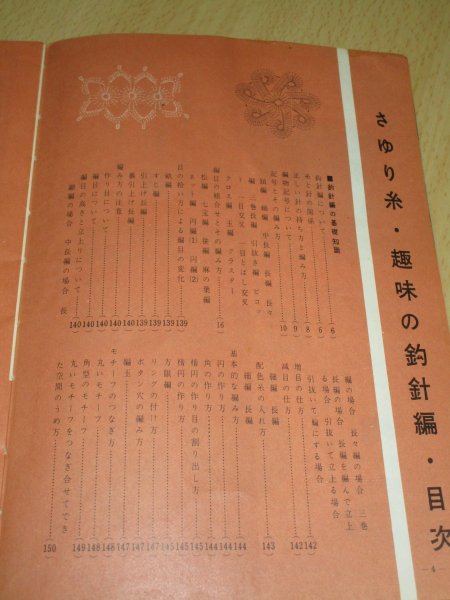 さゆり糸・趣味の釣針編・目次
—4—
■釣針編の基礎知識
釣針編について……6
糸と針の関係……6
正しい針の持ち方と編み方……8
編物記号について……9
記号とその編み方……10
鎖編 細編 中長編 長編 長々
編 三巻長編 引抜き編 ピコッ
ト 一目交叉 一目とはし交叉
クロス編 玉編 クラスター
編目の組合せとその編み方……16
松編 七宝編 接編 麻の葉編
ネット編 円編(1) 円編(2)
目の拾い方による編目の変化……139
畝編……139
すじ編……139
引上げ長編……139
裏引上げ長編……140
編み方の注意……140
作り目について……140
編目について……140
編目の高さと立上りについて……140
細編の場合 中長編の場合 長
編の場合 長々編の場合 三巻
長編の場合 長編を編んで立上
る場合 引抜いて立上る場合
引抜いて輪にする場合
増目の仕方……142
減目の仕方……142
細編 長編
配色糸の入れ方……143
細編 長編
基本的な編み方……144
円の作り方……144
角の作り方……144
楕円の作り目の割り出し方……145
楕円の作り方……145
方眼編……145
リングの付け方……147
ボタン穴の編み方……147
編玉……147
モチーフのつなぎ方……148
丸いモチーフ……148
角型のモチーフ……149
丸いモチーフをつなぎ合せてでき
た空間のうめ方……150